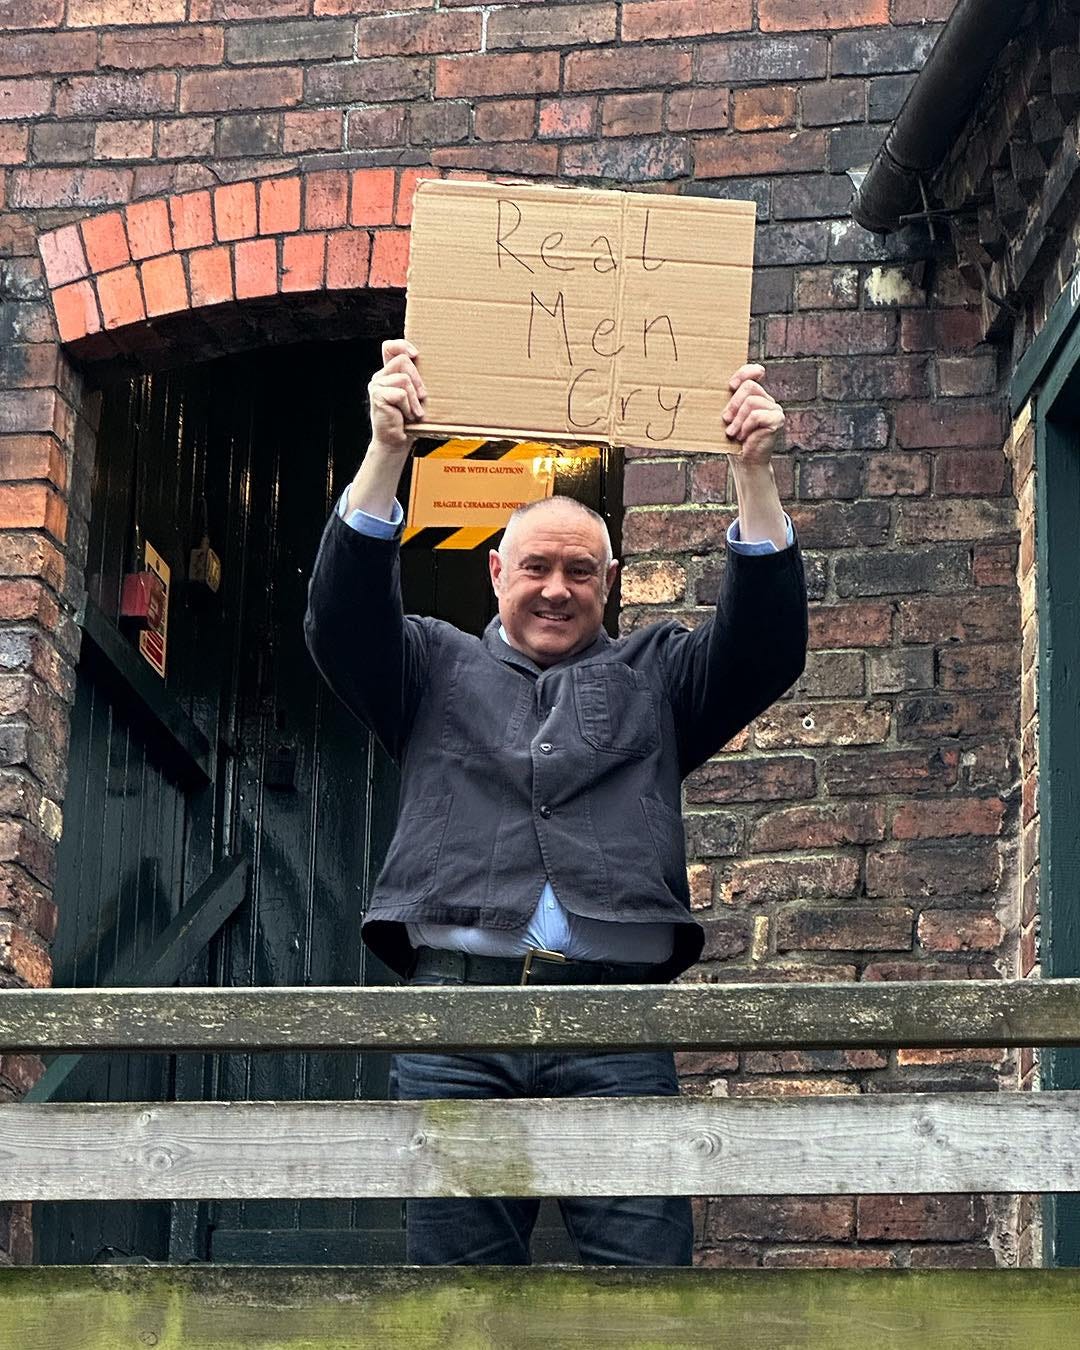 Real
Men
Cry
ENTER WITH CAUTION
FRAGILE CERAMICS